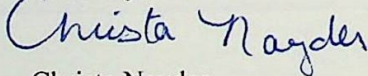 Christa Nayder
Christa Nayder